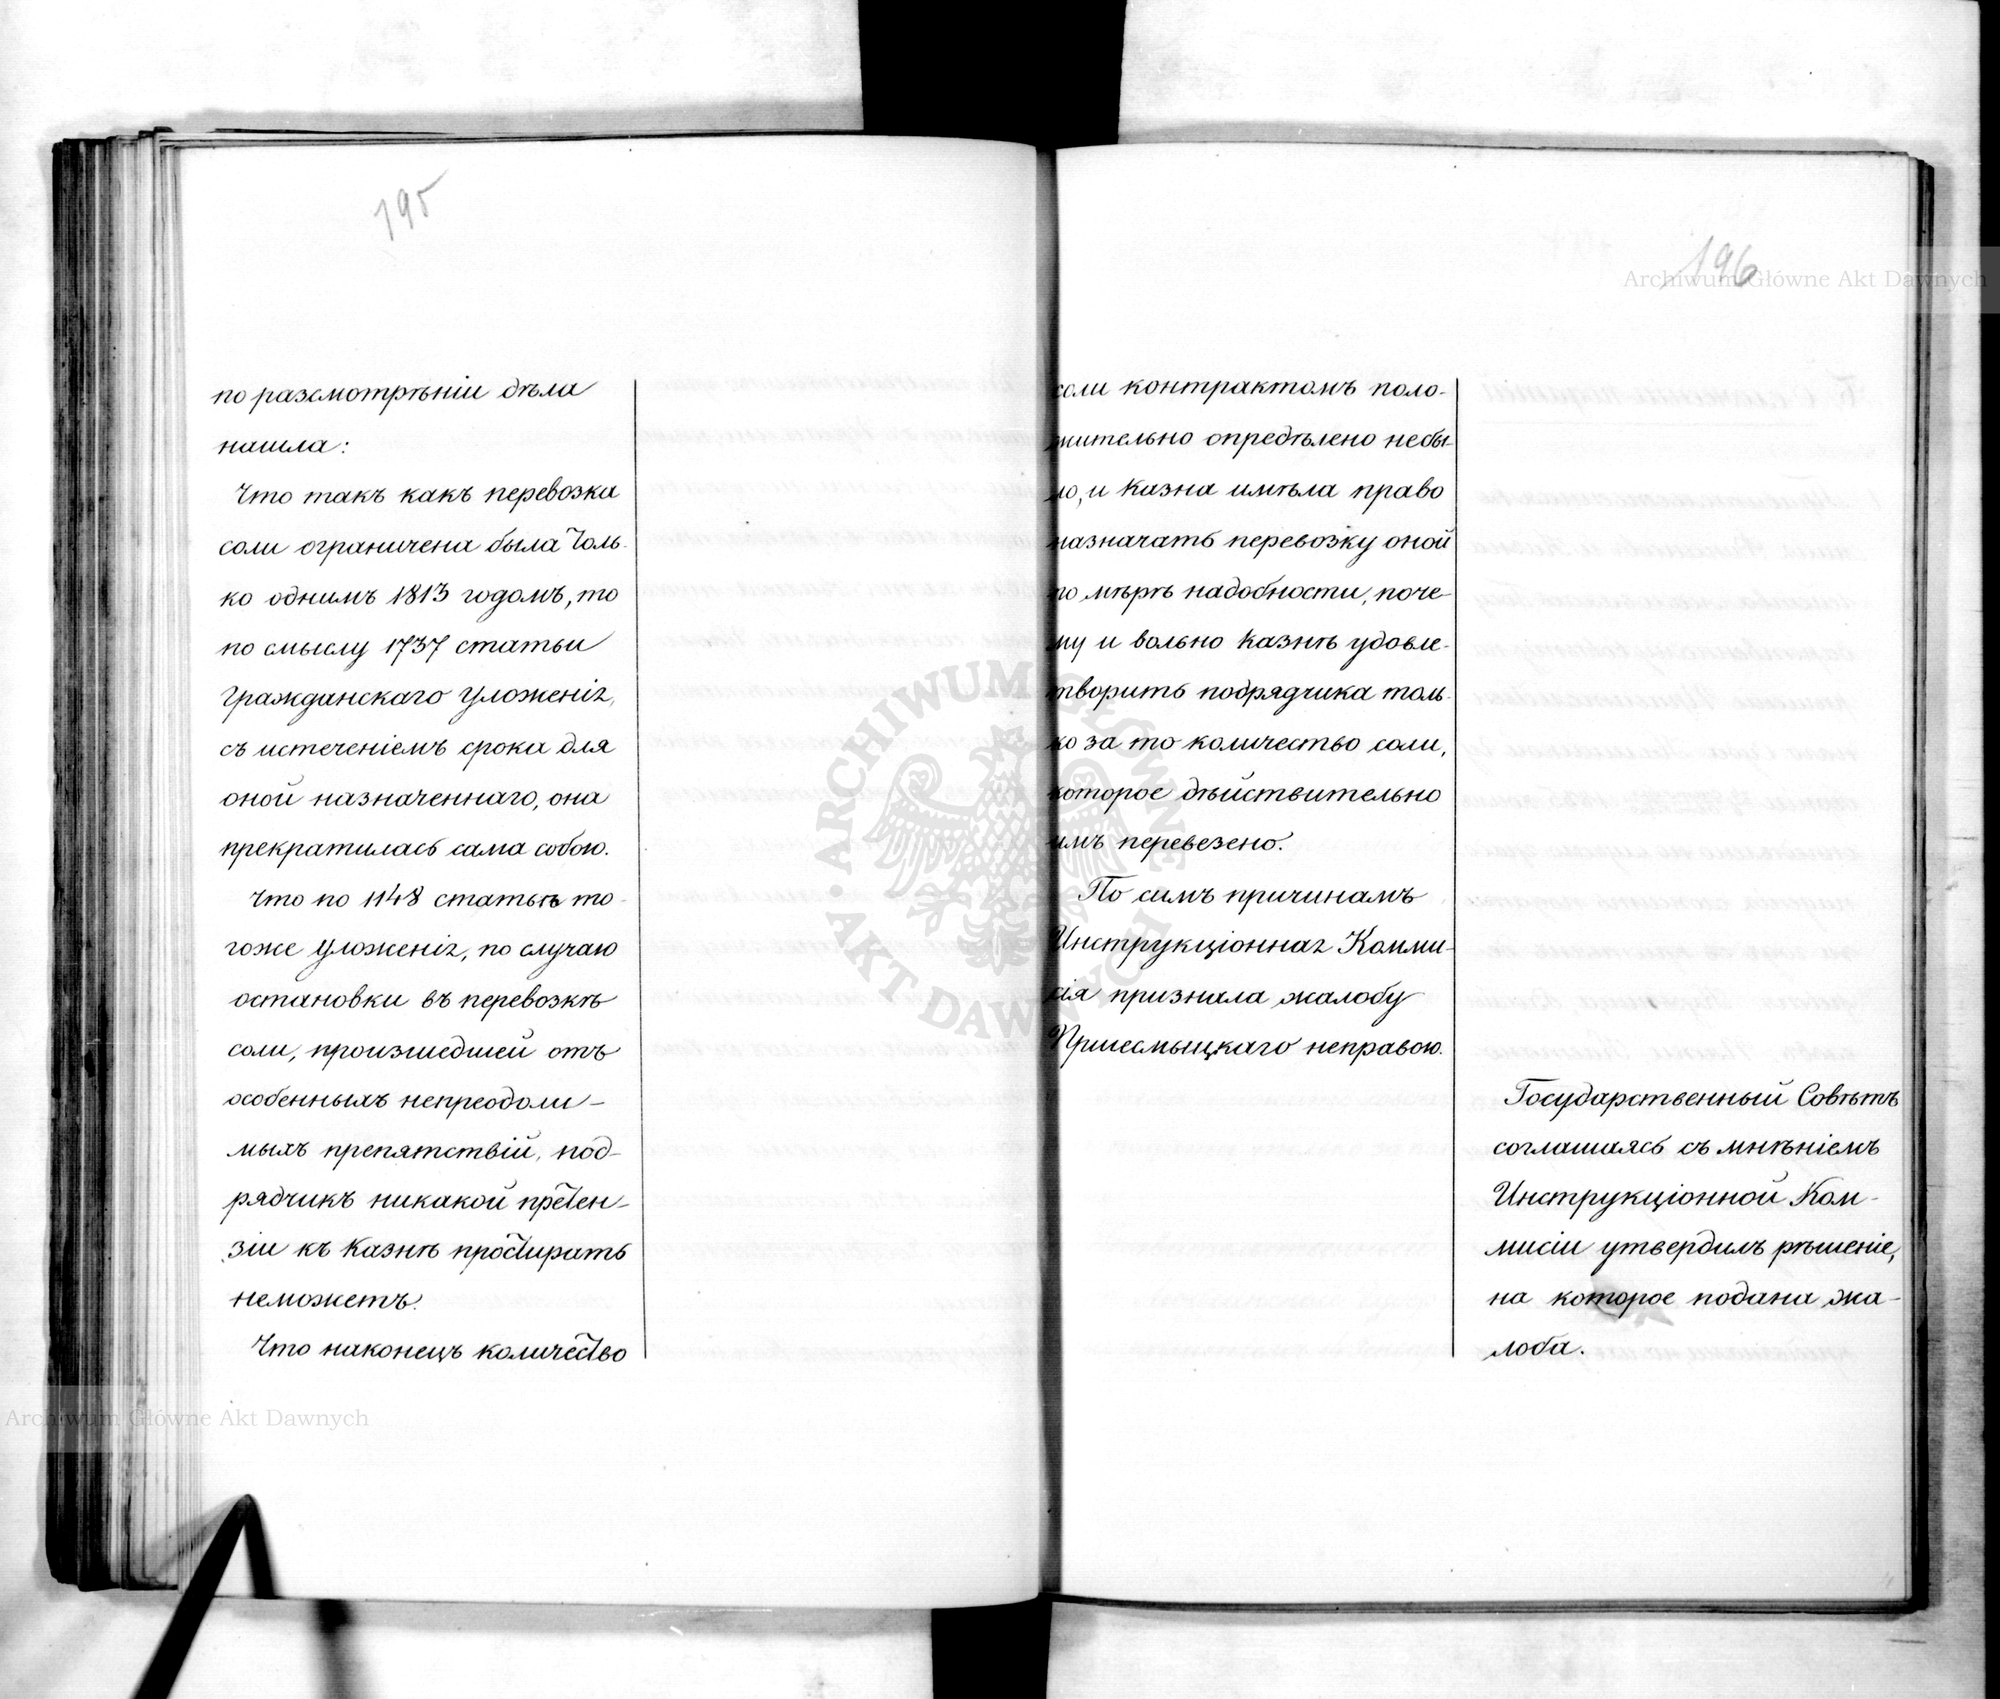 195
по разсмотрѣніи дѣла
нашла:
Что такъ какъ перевозка
соли ограничена была толь-
ко однимъ 1813 годомъ, то
по смыслу 1737 статьи
Гражданскаго Уложенія,
съ истеченіемъ срока для
оной назначеннаго, она
прекратилась сама собою.
Что по 1148 статьѣ то-
гоже Уложенія, по случаю
остановки въ перевозкѣ
соли, произшедшей отъ
особенныхъ непреодоли-
мыхъ препятствій, под-
рядчикъ никакой претен-
зіи къ Казнѣ простирать
неможетъ.
Что наконецъ количество
196
соли контрактомъ поло-
жительно опредѣлено небы-
ло, и Казна имѣла право
назначать перевозку оной
по мѣрѣ надобности, поче-
му и вольно Казнѣ удовле-
творить подрядчика толь-
ко за то количество соли,
которое дѣйствительно
имъ перевезено.
По симъ причинамъ
Инструкціонная Комми-
сія признала жалобу
Пршесмыцкаго неправою.
Государственный Совѣтъ
соглашаясь съ мнѣніемъ
Инструкціонной Ком-
мисіи утвердилъ рѣшеніе,
на которое подана жа-
лоба.
Archiwum Główne Akt Dawnych
Archiwum Główne Akt Dawnych
ARCHIWUM GŁÓWNE AKT DAWNYCH